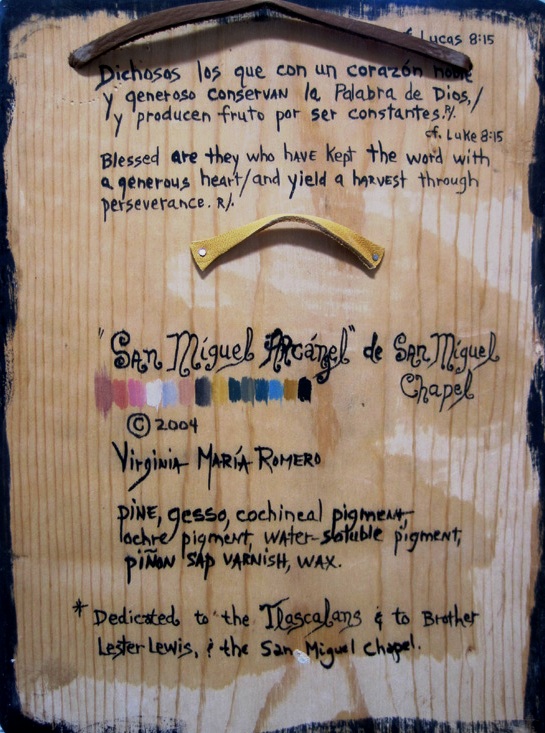 cf. Lucas 8:15
Dichosos los que con un corazón noble
y generoso conservan la Palabra de Dios,/
y producen fruto por ser constantes. R/.
cf. Luke 8:15
Blessed are they who have kept the word with
a generous heart/and yield a harvest through
perseverance. R/.
"San Miguel Arcángel" de San Miguel
Chapel
© 2004
Virginia María Romero
pine, gesso, cochineal pigment,
ochre pigment, water-soluble pigment,
piñon sap varnish, wax.
* Dedicated to the Tlascalans & to Brother
Lester Lewis, & the San Miguel Chapel.